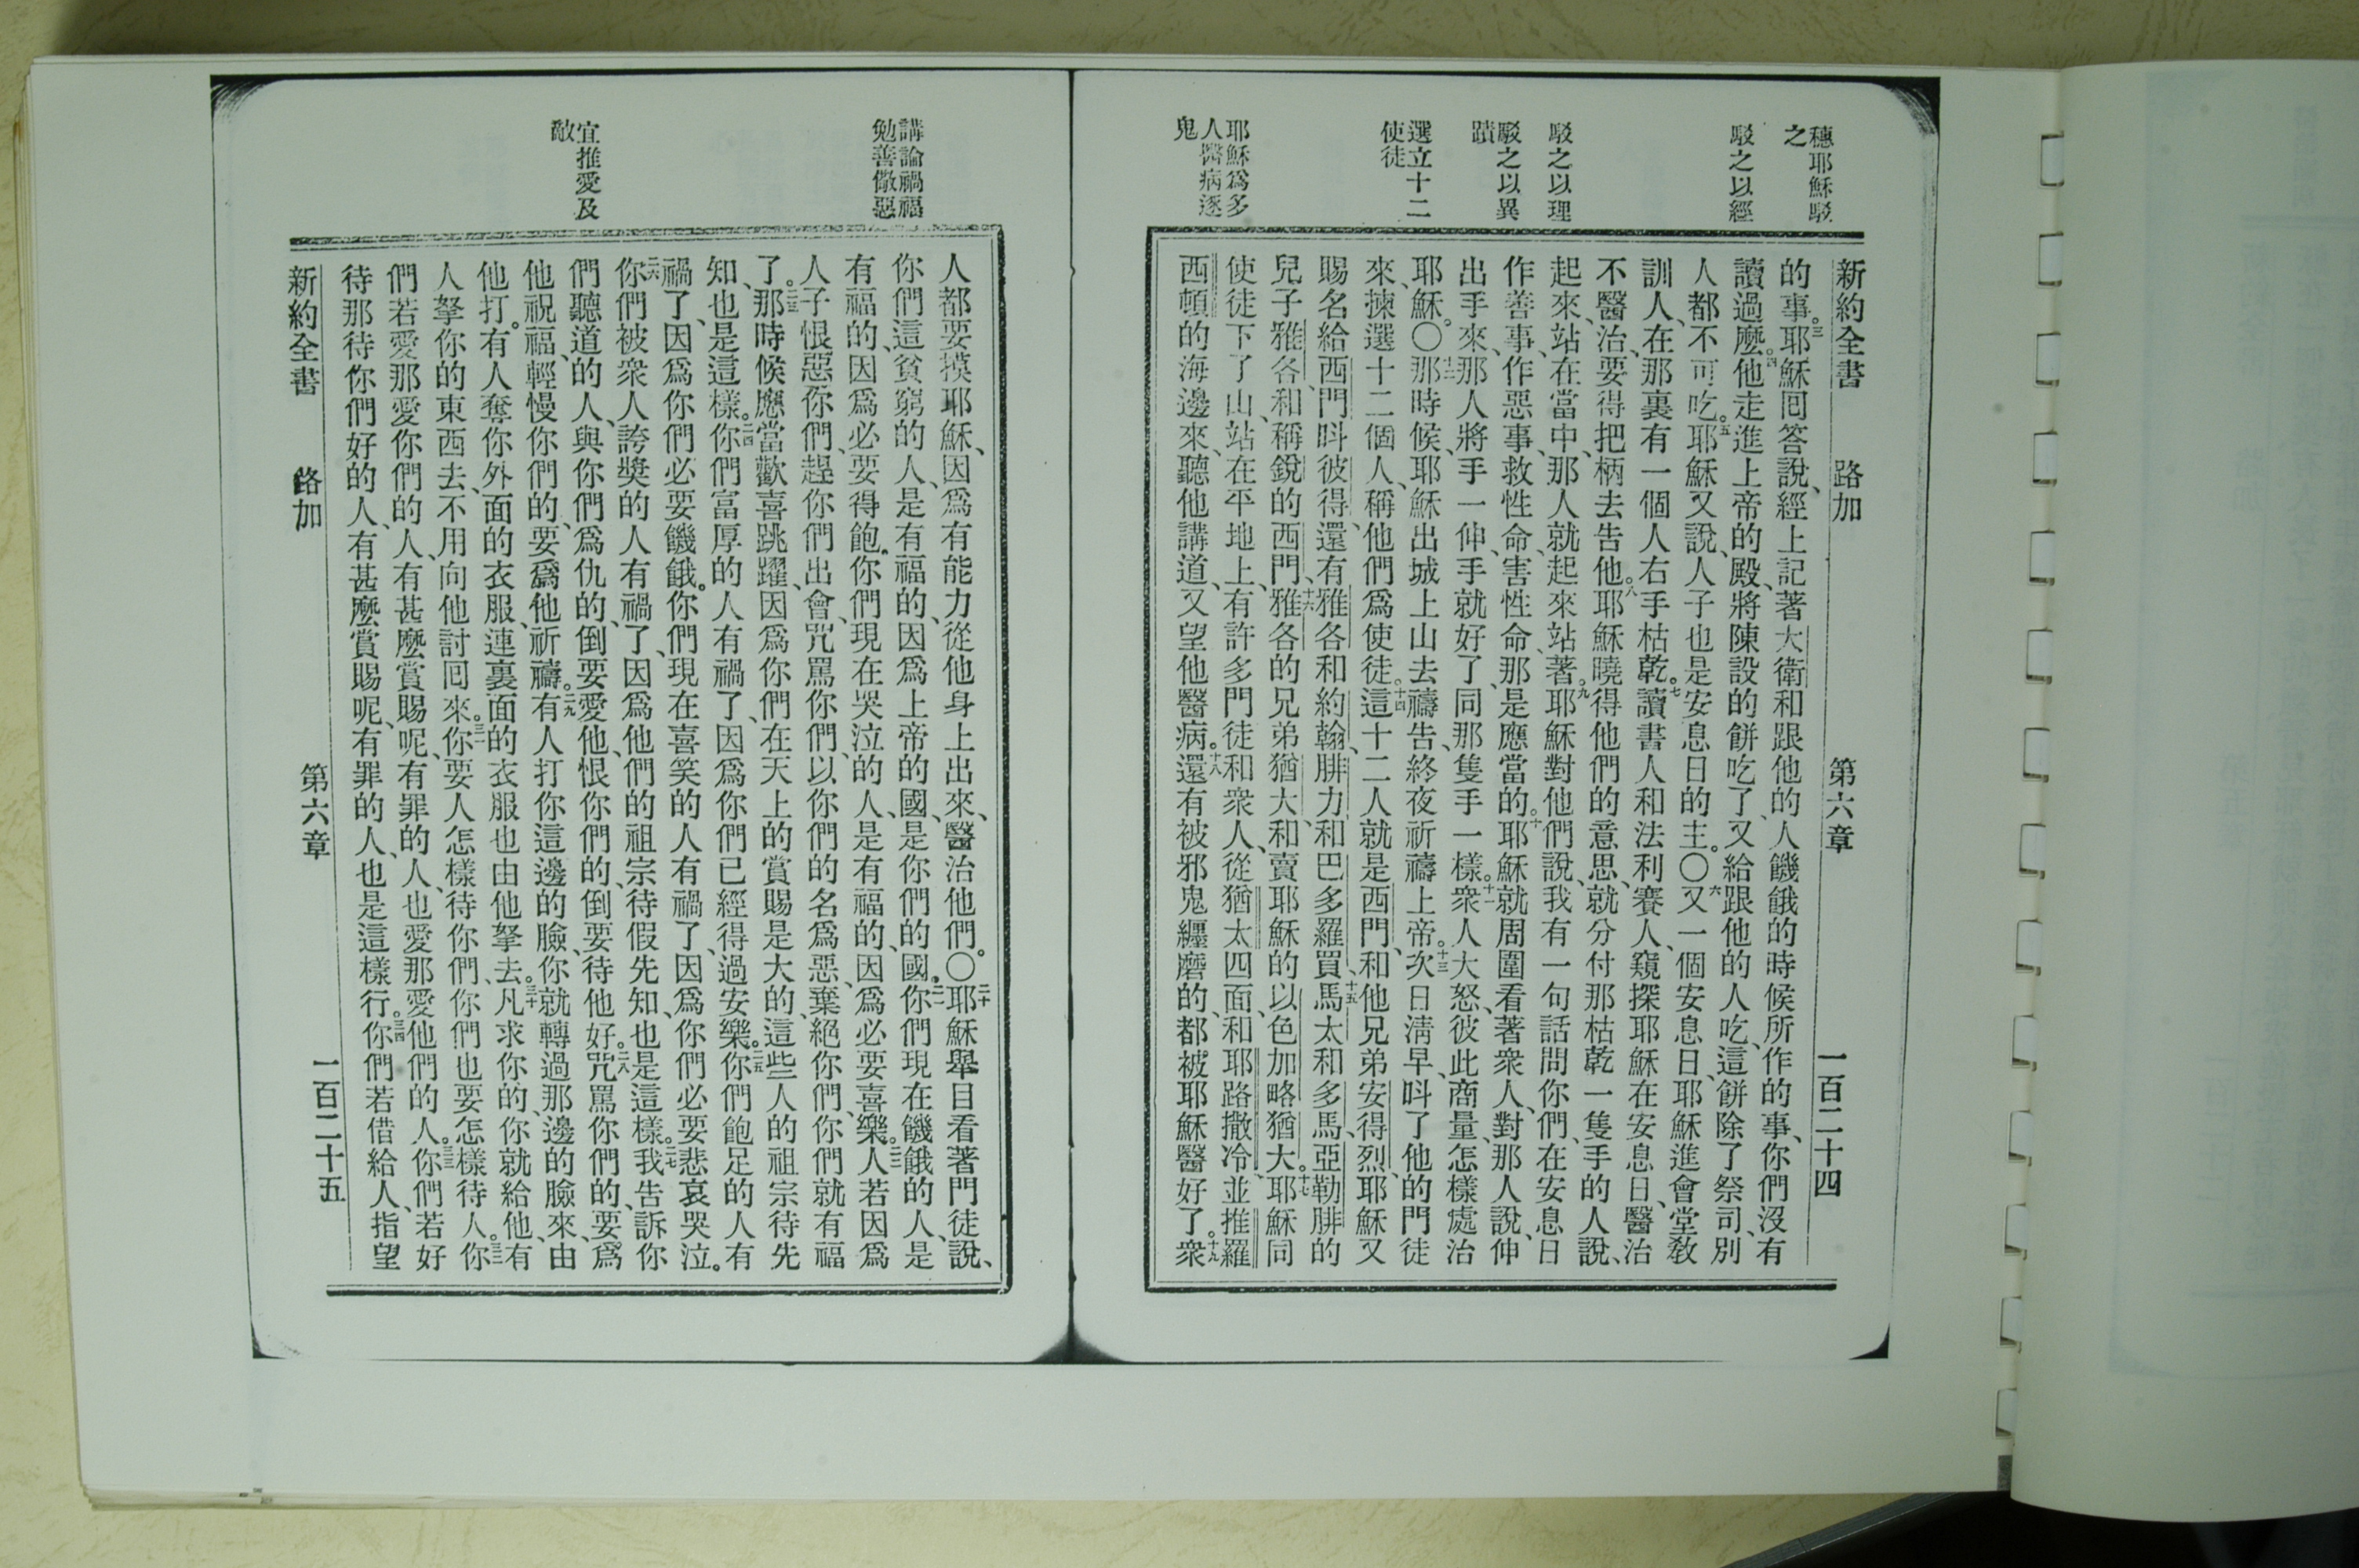 穗耶穌駁
之
駁之以經
駁之以理
駁之以異
蹟
選立十二
使徒
耶穌爲多
人醫病逐
鬼
新約全書 路加 第六章 一百二十四
的事。三耶穌囘答說、經上記著大衛和跟他的人饑餓的時候所作的事、你們沒有
讀過麽。四他走進上帝的殿、將陳設的餅吃了、又給跟他的人吃、這餅除了祭司、別
人都不可吃。五耶穌又說、人子也是安息日的主。〇六又一個安息日、耶穌進會堂敎
訓人、在那裏有一個人右手枯乾。七讀書人和法利賽人、窺探耶穌在安息日、醫治
不醫治、要得把柄去告他。八耶穌曉得他們的意思、就分付那枯乾一隻手的人說、
起來、站在當中、那人就起來站著。九耶穌對他們說、我有一句話問你們、在安息日
作善事、作惡事、救性命、害性命、那是應當的。十耶穌就周圍看著衆人、對那人說、伸
出手來、那人將手一伸、手就好了、同那隻手一樣。十一衆人大怒、彼此商量、怎樣處治
耶穌。〇十二那時候、耶穌出城上山去禱告、終夜祈禱上帝。十三次日淸早、呌了他的門徒
來、揀選十二個人、稱他們爲使徒。十四這十二人就是西門、和他兄弟安得烈、耶穌又
賜名給西門呌彼得、還有雅各和約翰、腓力和巴多羅買、十五馬太和多馬、亞勒腓的
兒子雅各、和稱銳的西門、十六雅各的兄弟猶大、和賣耶穌的以色加略猶大。十七耶穌同
使徒下了山、站在平地上、有許多門徒和衆人、從猶太四面、和耶路撒冷、並推羅
西頓的海邊來、聽他講道、又望他醫病。十八還有被邪鬼纒磨的、都被耶穌醫好了。十九衆
講論禍福
勉善儆惡
宜推愛及
敵
人都要摸耶穌、因爲有能力從他身上出來、醫治他們。〇二十耶穌舉目看著門徒說、
你們這貧窮的人、是有福的、因爲上帝的國、是你們的國。二一你們現在饑餓的人、是
有福的、因爲必要得飽。你們現在哭泣的人、是有福的、因爲必要喜樂。二二人若因爲
人子恨惡你們、趕你們出會、咒罵你們、以你們的名爲惡、棄絕你們、你們就有福
了。二三那時候應當歡喜跳躍、因爲你們在天上的賞賜是大的、這些人的祖宗待先
知、也是這樣。二四你們富厚的人有禍了、因爲你們已經得過安樂。二五你們飽足的人有
禍了、因爲你們必要饑餓。你們現在喜笑的人有禍了、因爲你們必要悲哀哭泣。
二六你們被衆人誇獎的人有禍了、因爲他們的祖宗待假先知、也是這樣。二七我告訴你
們聽道的人、與你們爲仇的、倒要愛他、恨你們的、倒要待他好。二八咒罵你們的、要爲
他祝福、輕慢你們的、要爲他祈禱。二九有人打你這邊的臉、你就轉過那邊的臉來、由
他打。有人奪你外面的衣服、連裏面的衣服也由他拏去。三十凡求你的、你就給他、有
人拏你的東西去、不用向他討囘來。三一你要人怎樣待你們、你們也要怎樣待人。三二你
們若愛那愛你們的人、有甚麽賞賜呢、有罪的人、也愛那愛他們的人。三三你們若好
待那待你們好的人、有甚麽賞賜呢、有罪的人、也是這樣行。三四你們若借給人、指望
新約全書 路加 第六章 一百二十五